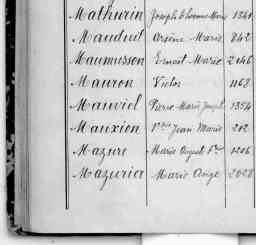 Mathurin Joseph Thomas Marie 1341
Mauduit Arsène Marie 842
Maumusson Ernest Marie 2046
Mauron Victor 1168
Mauviel Pierre Marie Joseph 1354
Mauxion Jean Marie 202
Mazure Marie August 1206
Mazurié Marie Ange 2028